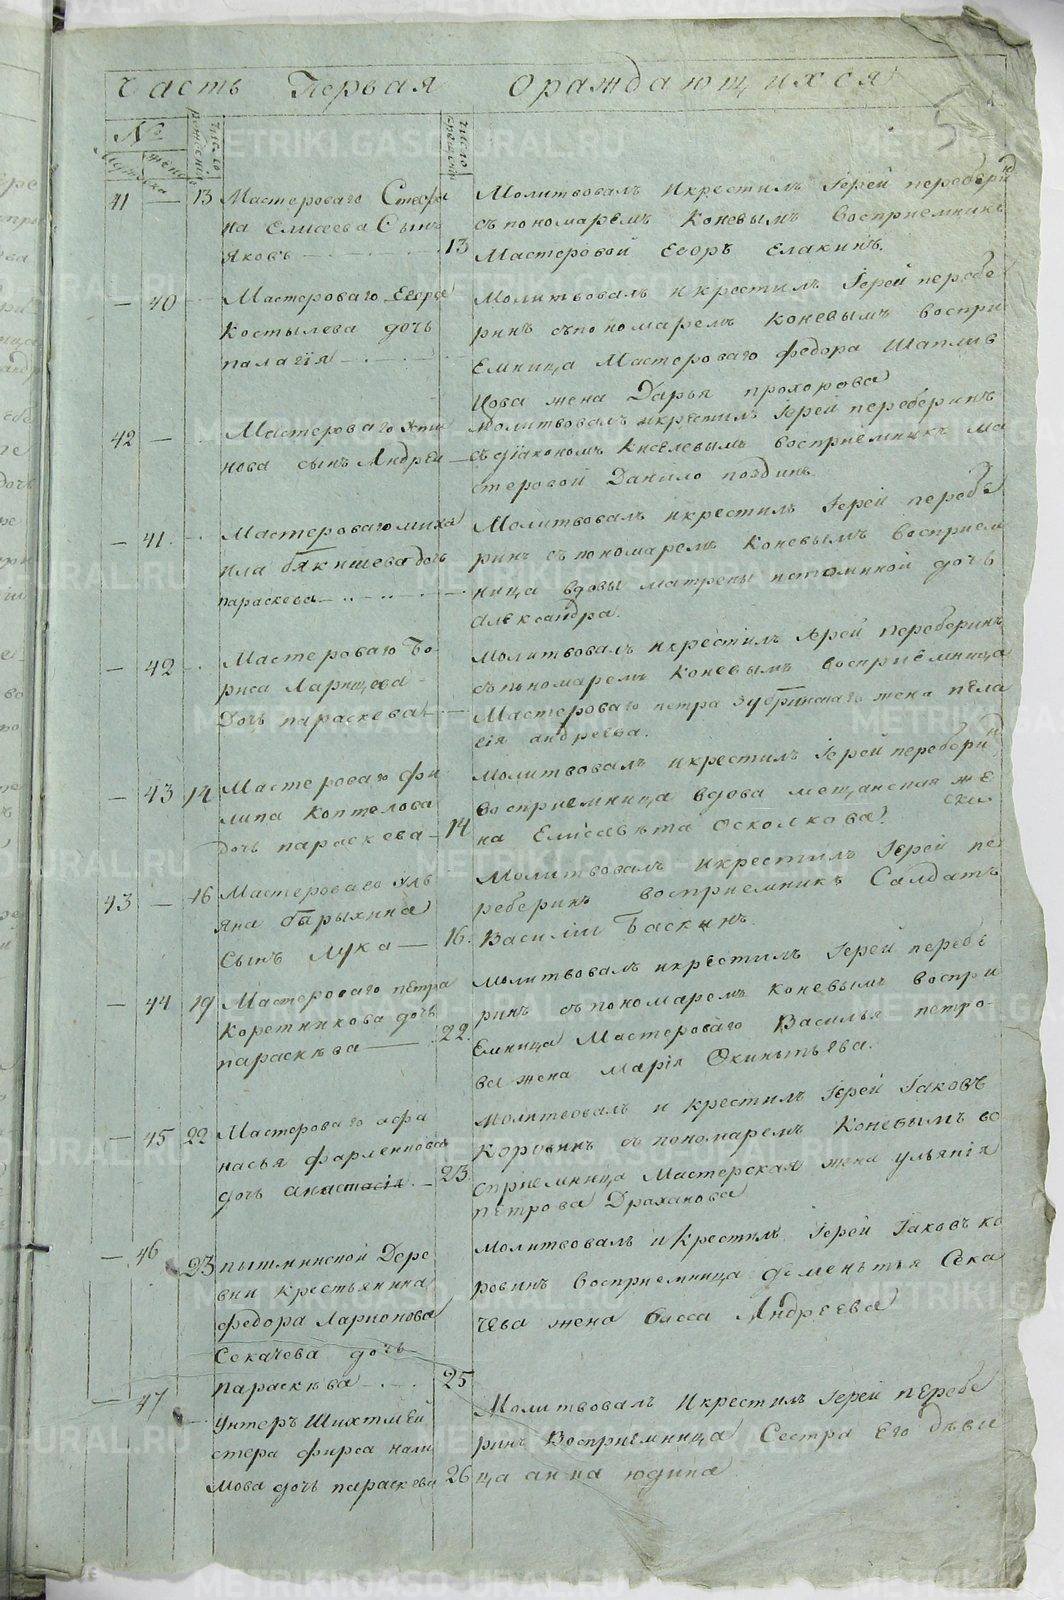 Часть Первая ораждающихся
5
№
Мужска
женс
число рождений
число крещений
41 — 13 Мастероваго Стефа
на Елисеева Сынъ
Яковъ — 13
Молитвовалъ икрестилъ Іерей перебери
съпономаремъ Коневымъ Восприемникъ
Мастеровой Егоръ Елакинъ.
— 40 — Мастероваго Егора
Костылева дочь
палагія —
Молитвовалъ икрестилъ Іерей перебе
ринъ съпономаремъ коневымъ воспри
Емница Мастероваго федора Шаплив
цова жена Дарья прохорова
42 — Мастероваго
нова сынъ Андрей —
Молитвовалъ икрестилъ Іерей переберинъ
съдіакономъ Киселевымъ восприемникъ ма
стеровой Данило поздинъ
— 41. — Мастероваго миха
ила бякишева дочь
параскева —
Молитвовалъ икрестилъ Іерей перебе
ринъ съпономаремъ Коневымъ восприем
ница вдовы матрены истоминой дочь
александра.
— 42 — Мастероваго Бо
риса Ларищева
дочь параскева —
Молитвовалъ икрестилъ Іерей переберинъ
съпономаремъ Коневымъ восприемница
Мастероваго петра зубринскаго жена пела
гія андреева.
— 43 14 Мастероваго фи
липа Коптелова
дочь параскева — 14
Молитвовалъ икрестилъ Іерей перебери
восприемница вдова мещанская же
на Елисавъта Осколкова
43 — 16 Мастероваго Уль
яна бырыхина
Сынъ Лука — 16.
Молитвовалъ икрестилъ Іерей пе
реберинъ восприемникъ Салдатъ
Василій Баскинъ
— 44 19 Мастероваго петра
Коретникова дочь
параскъва — 22.
Молитвовалъ икрестилъ Іерей перебе
ринъ съпономаремъ коневымъ воспри
Емница Мастероваго Василья петро-
ва жена марія Окинтьева.
— 45 22 Мастероваго афа
насья фарленкова
дочь анастасія. — 23
Молитвовалъ и крестилъ Іерей Іаковъ
Коровинъ съпономаремъ Коневымъ во
сприемница Мастерская жена ульянія
петрова Драханова
— 46 23 пышминской Дере
вни крестьянина
федора Ларионова
Секачева дочь
параскъва — 25
Молитвовалъ икрестилъ Іерей Іаковъ ко
ровинъ Восприемница дементья Сека
чева жена васса Андреева
— 47 — Унтеръ Шихтмей
стера фирса нали
мова дочь параскева 26
Молитвовалъ Икрестилъ Іерей перебе
ринъ Восприемница Сестра Его дъви
ца анна юдина